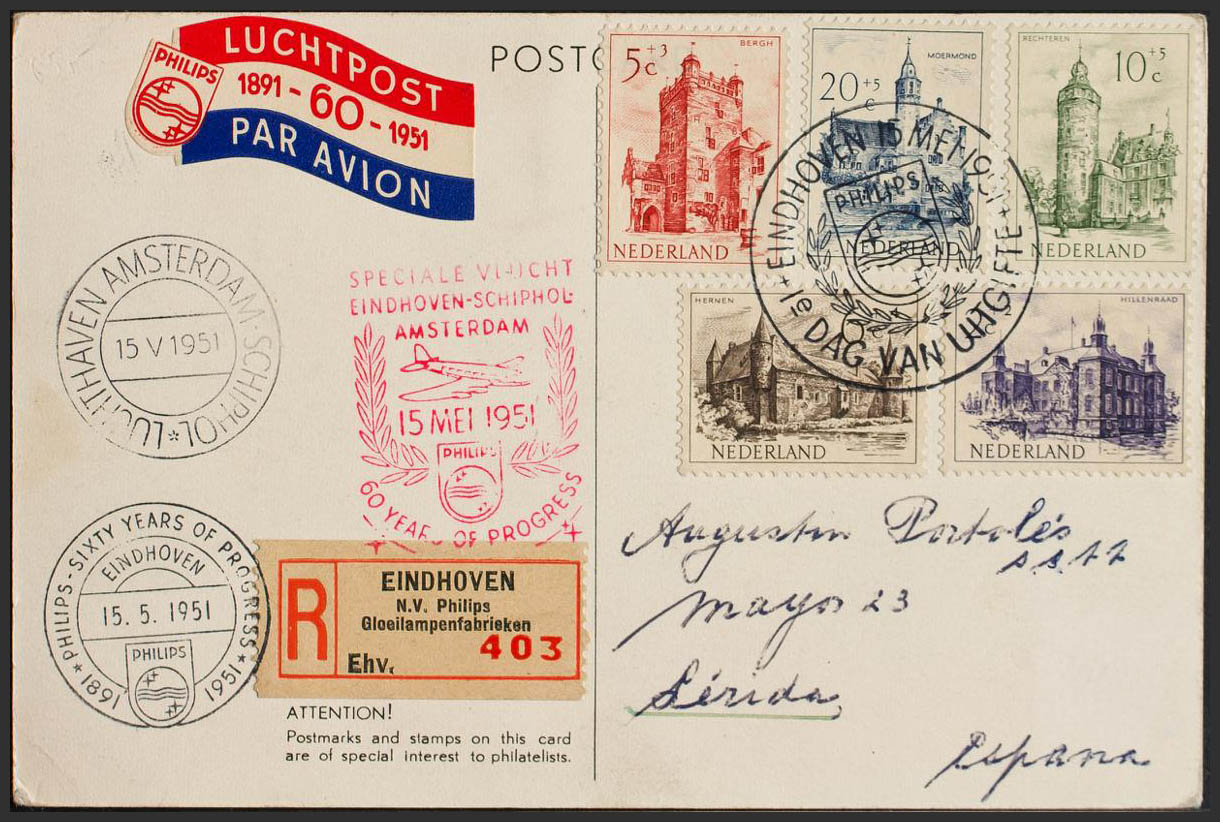 LUCHTPOST
PHILIPS
1891 - 60 - 1951
PAR AVION
POSTC
5+3 c
BERGH
NEDERLAND
20+5 c
MOERMOND
NEDERLAND
RECHTEREN
10+5 c
NEDERLAND
HERNEN
NEDERLAND
HILLENRAAD
NEDERLAND
EINDHOVEN 15 MEI 1951
PHILIPS
1e DAG VAN UITGIFTE
LUCHTHAVEN AMSTERDAM-SCHIPHOL
15 V 1951
SPECIALE VLUCHT
EINDHOVEN-SCHIPHOL-
AMSTERDAM
15 MEI 1951
PHILIPS
60 YEARS OF PROGRESS
PHILIPS-SIXTY YEARS OF PROGRESS
EINDHOVEN
15. 5. 1951
PHILIPS
1891 1951
R
EINDHOVEN
N.V. Philips
Gloeilampenfabrieken
403
Ehv.
ATTENTION!
Postmarks and stamps on this card
are of special interest to philatelists.
Augustin Portolés
Mayor 23
Lérida
España